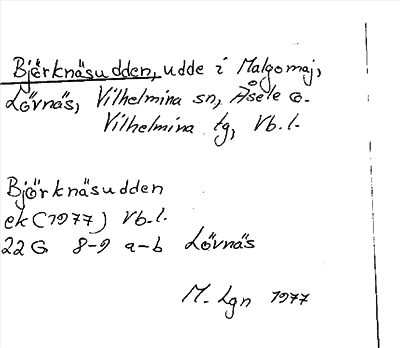 Björknäsudden, udde i Malgomaj,
Lövnäs, Vilhelmina sn, Åsele o.
Vilhelmina tg, Vb.l.
Björknäsudden
ek (1977) Vb.l.
22 G 8-9 a-b Lövnäs
M. Lgn 1977